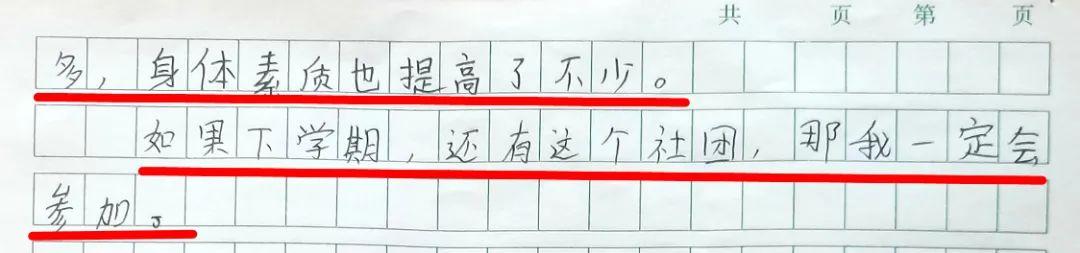 共 页 第 页
多，身体素质也提高了不少。
如果下学期，还有这个社团，那我一定会
参加。